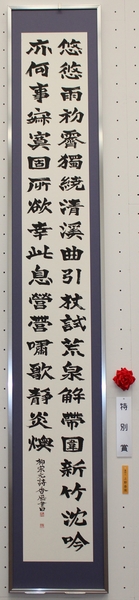 悠悠雨初霽獨繞清溪曲引杖試荒泉解帶圍新竹沈吟
亦何事寂寞固所欲幸此息營營嘯歌靜炎燠
柳宗元詩
特別賞